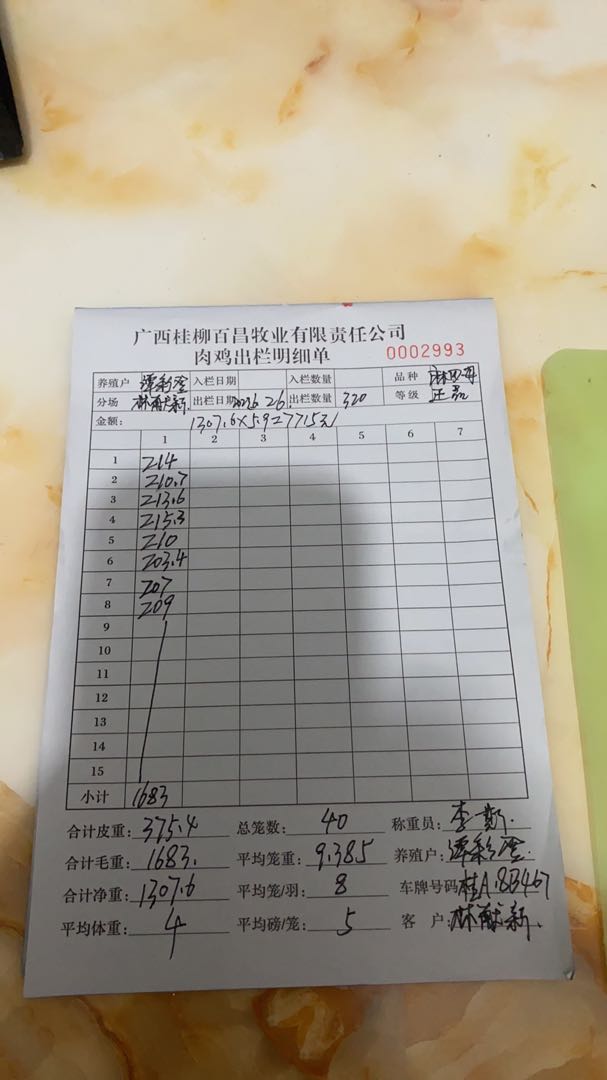 广西桂柳百昌牧业有限责任公司
肉鸡出栏明细单 0002993
养殖户 谭彩 入栏日期 入栏数量 品种
分场 林献新 出栏日期 出栏数量 320 等级 正品
金额: 1307.6×5.9=7715元
1 2 3 4 5 6 7
1 214
2 210.7
3 213.6
4 215.3
5 210
6 203.4
7 207
8 209
9
10
11
12
13
14
15
小计 1683
合计皮重: 375.4 总笼数: 40 称重员: 李
合计毛重: 1683. 平均笼重: 9.385 养殖户: 谭彩
合计净重: 1307.6 平均笼/羽: 8 车牌号码: 桂A.8B467
平均体重: 4 平均磅/笼: 5 客户: 林献新.